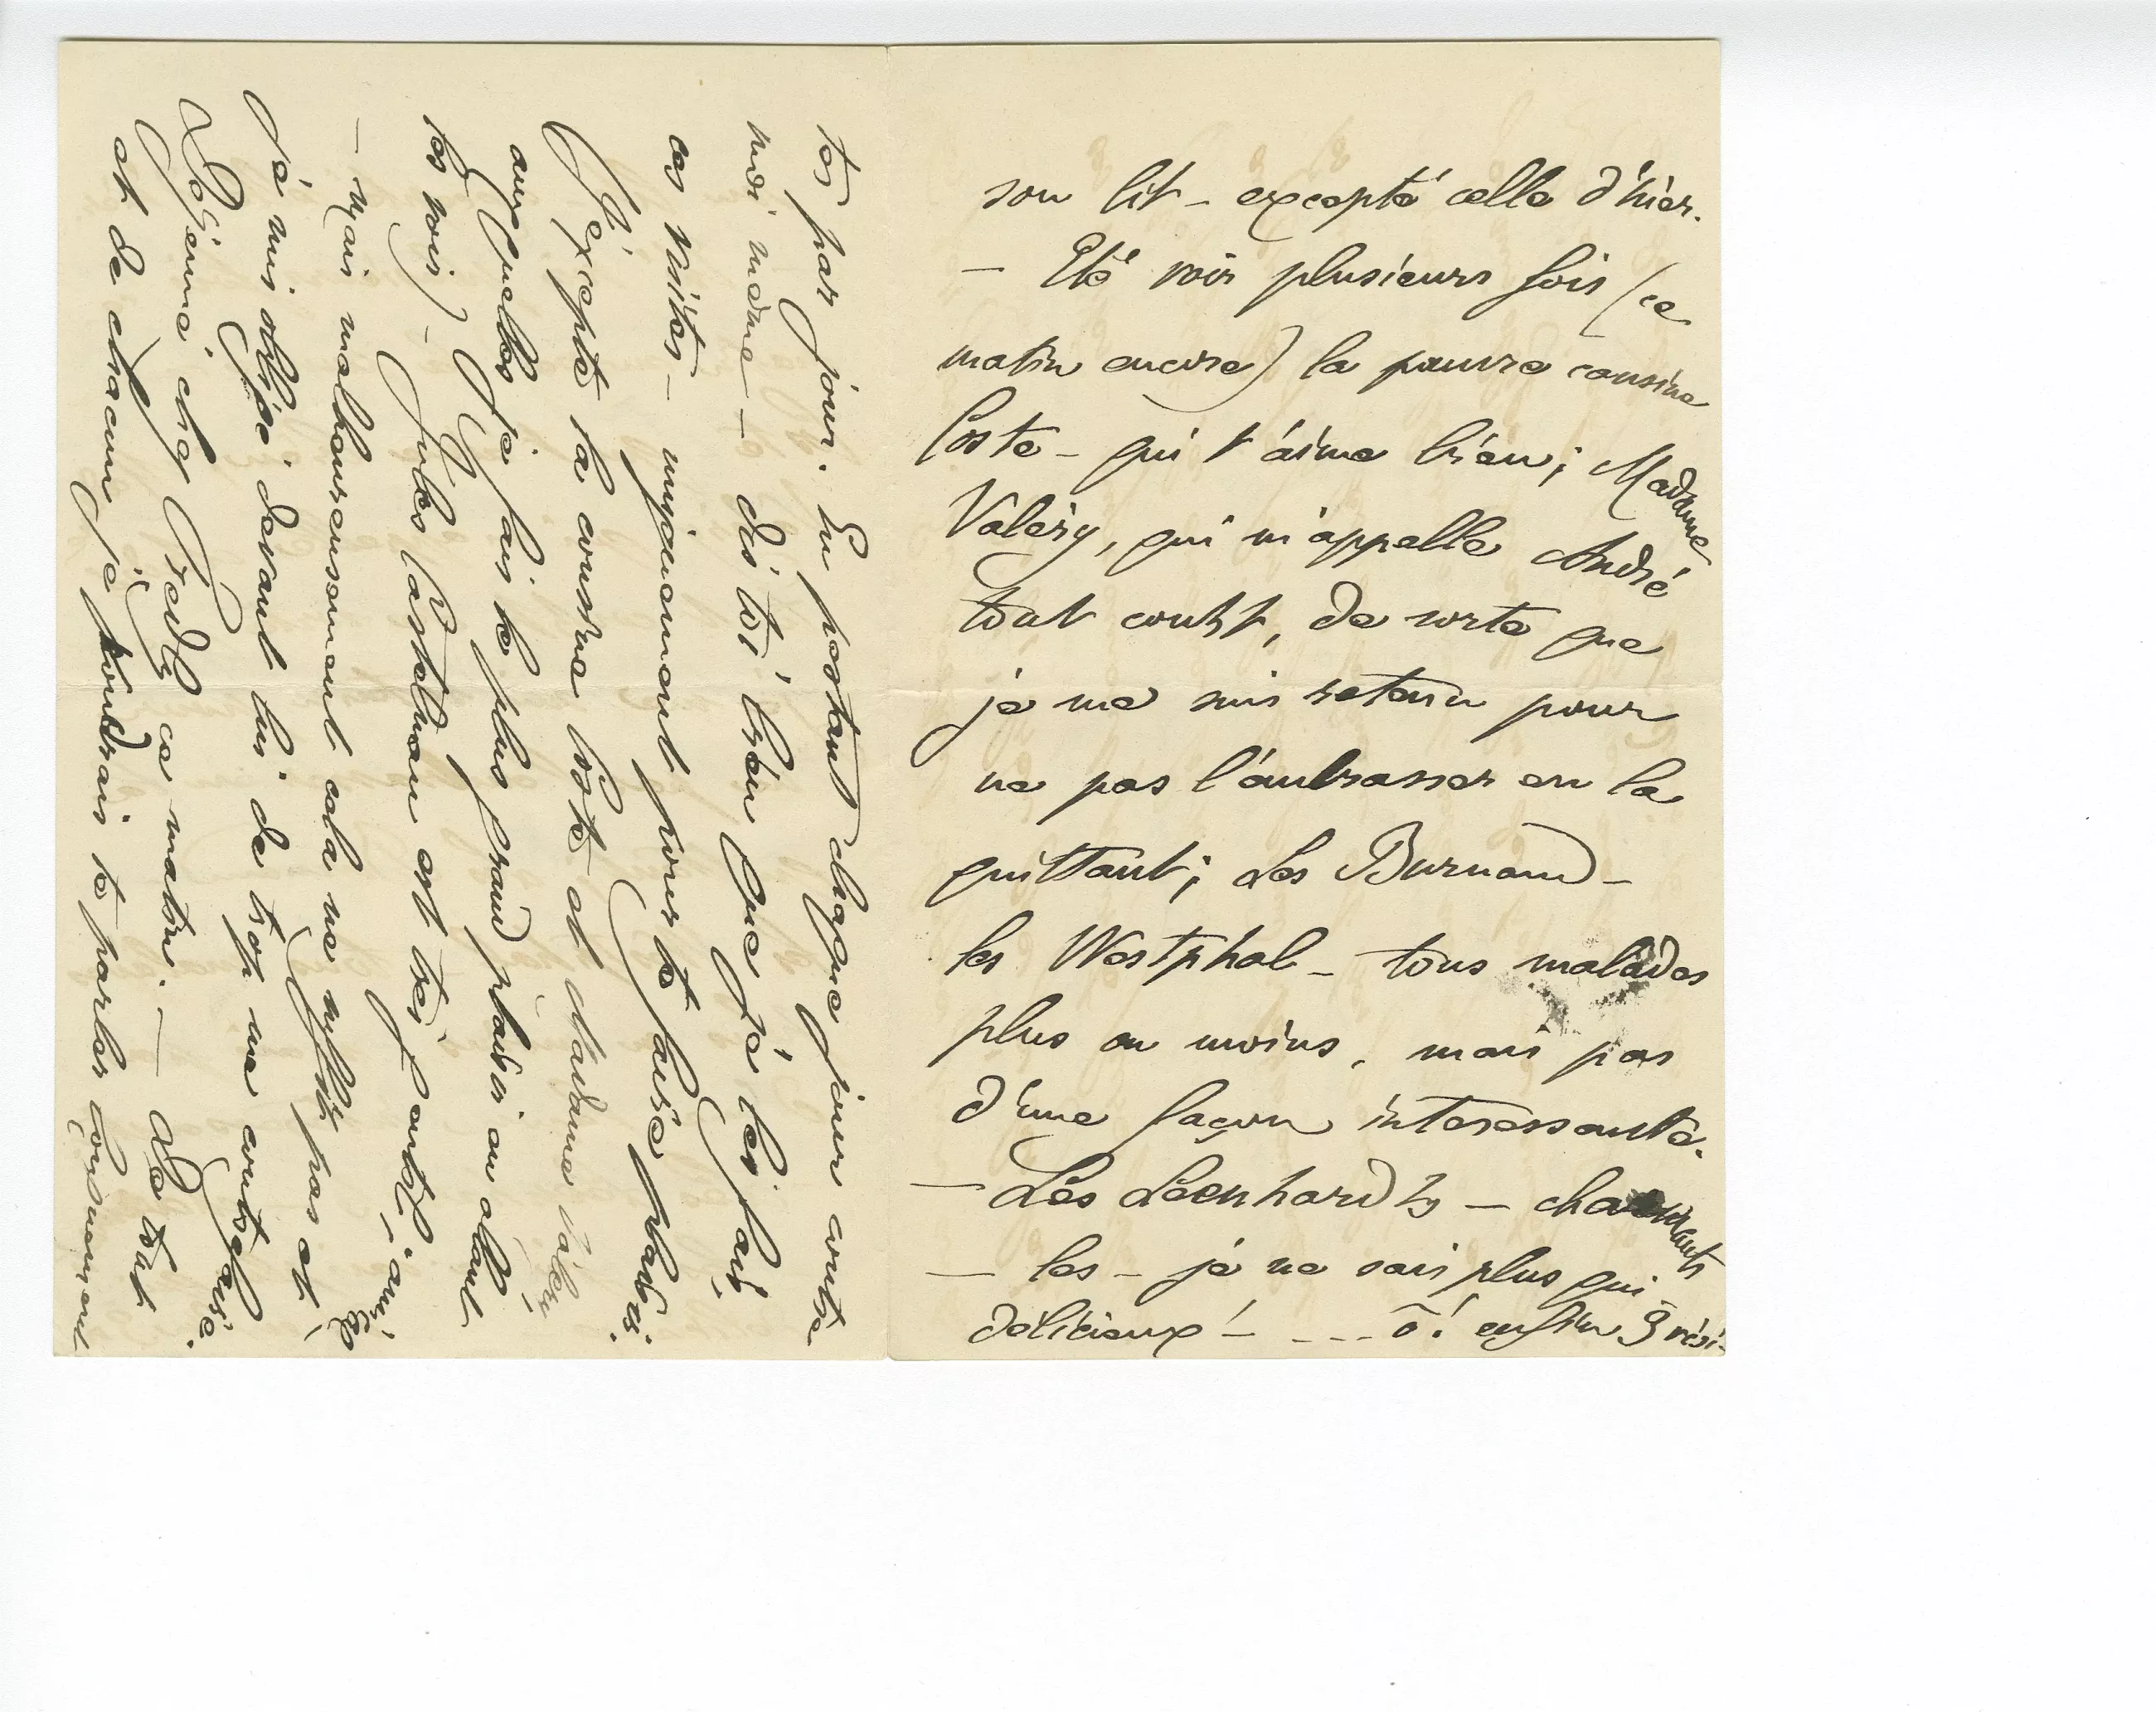 son lit – excepté celle d'hier.
– Été voir plusieurs fois (ce
matin encore) la pauvre cousine
Coste – qui t'aime bien ; Madame
Valéry, qui m'appelle André
tout court, de sorte que
je me suis retenu pour
ne pas l'embrasser en la
quittant ; Les Burnand –
les Westphal – tous malades
plus ou moins, mais pas
d'une façon interessante.
– Les Leenhardts – charmants
– les – je ne sais plus qui –
délicieux ! – --- ô ! enfin 3 visi-
tes par jour. En pestant chaque jour contre
moi même – dis toi bien que je les fais,
ces visites – uniquement pour te faire plaisir.
(J'excepte la cousine Coste et Madame Valéry
auxquelles je fais le plus grand plaisir en allant
les voir) – Jules Castelnau est très gentil, amical
– mais malheureusement cela ne suffit pas et
je suis obligé devant lui de trop me contrefaire.
Déjeuné chez Fredz ce matin. – De tout
et de chacun je voudrais te parler longuement